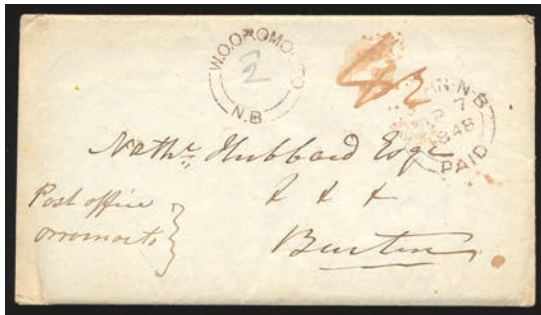 W.O.OROMOCTO
2
N.B.
N.B
7
1848
PAID
Nathl Hubbard Esqr
& & &
Burton
Post office
orromocto